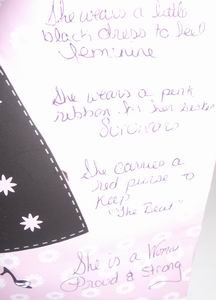 She wears a little
black dress to feel
feminine
She wears a pink
ribbon for her sister
Survivors
She carries a
red purse to
keep
"The Beat"
She is a Woman
Proud & Strong